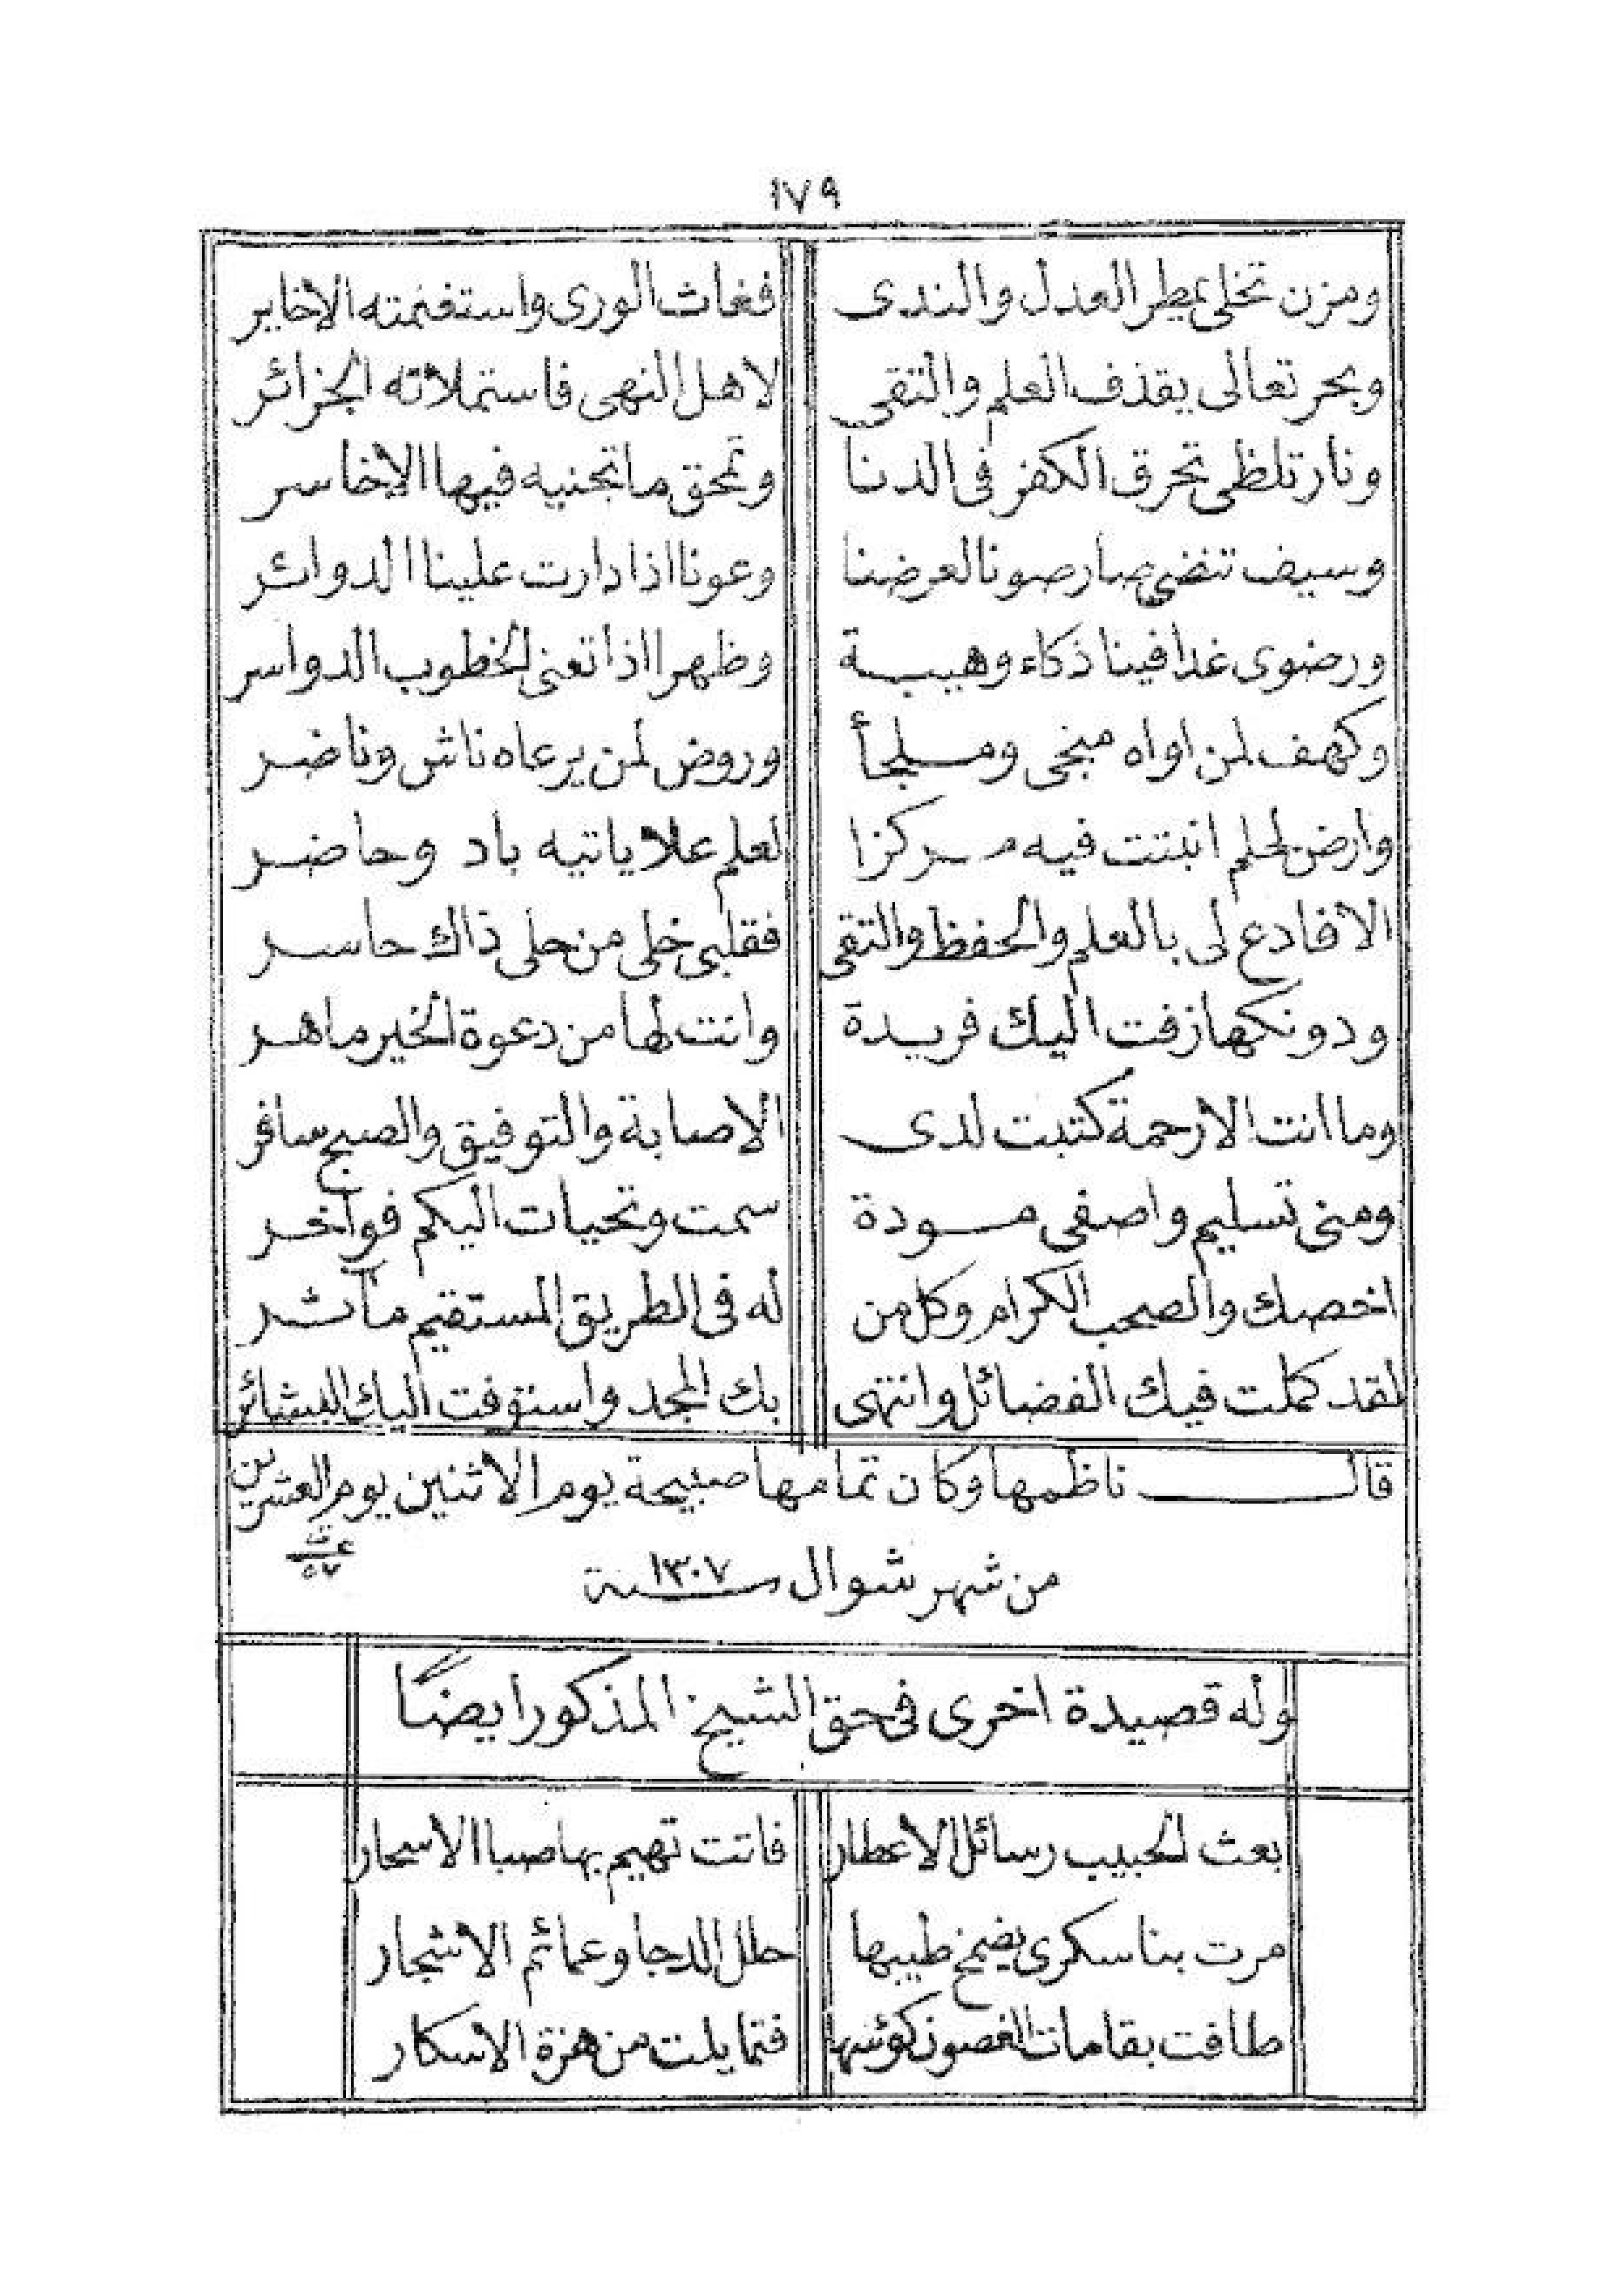 ١٧٩
ومزن تخلى بمطر العدل والندى فغاث الورى واستغنمته الاخاير
وبحر تعالى يقذف العلم والتقى لاهل النهى فاستملاته الجزائر
ونار تلظى تحرق الكفر فى الدنا وتمحق ما تجنيه فيها الاخاسر
وسيف تنضى صار صونا لعرضنا وعونا اذا دارت علينا الدوائر
ورضوى غدا فينا ذكاء وهيبة وظهرا اذا تعنى الخطوب الدواسر
وكهف لمن اواه منجى وملجأ وروض لمن يرعاه ناش وناضر
وارض لحلم انبتت فيه مركزا لعلم علا ياتيه باد وحاضر
الا فادع لى بالعلم والحفظ والتقى فقلبى خلى من حلى ذاك حاسر
ودونكها زفت اليك فريدة وانت لها من دعوة الخير ماهر
وما انت الا رحمة كتبت لدى الاصابة والتوفيق والصبح سافر
ومنى تسليم واصفى مودة سمت وتحيات اليكم فواخر
اخصك والصحب الكرام وكل من له فى الطريق المستقيم مآثر
لقد كملت فيك الفضائل وانتهى بك المجد واستوفت اليك البشائر
قال ناظمها وكان تمامها صبيحة يوم الاثنين يوم العشرين
من شهر شوال سنة ١٣٠٧
وله قصيدة اخرى فى حق الشيخ المذكور ايضًا
بعث الحبيب رسائل الأعطار فاتت تهيم بها صبا الاسحار
مرت بنا سكرى يضمخ طيبها حلل الدجا وعمائم الاشجار
طافت بقامات الغصون كؤسها فتمايلت من هزة الاسكار